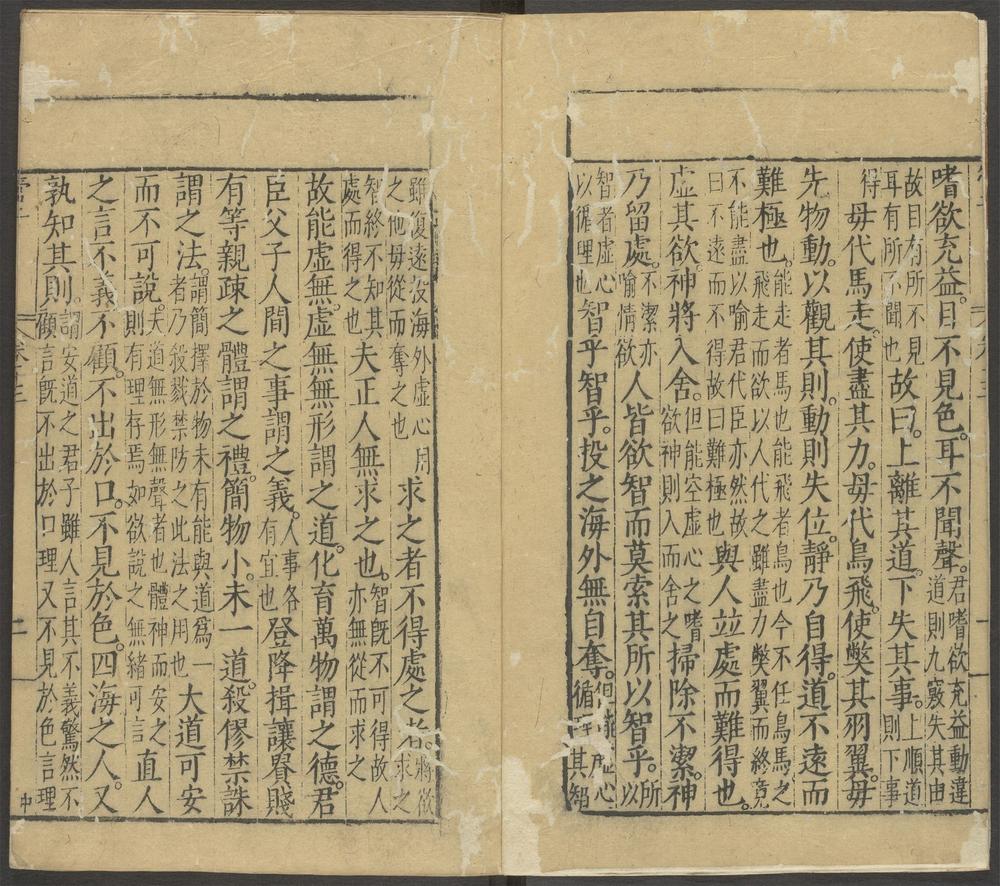 嗜欲充益。目不見色。耳不聞聲。君嗜欲充益動違道則九竅失其由
故目有所不見耳有所不聞也故曰。上離其道。下失其事。上順道則下事
得毋代馬走。使盡其力。毋代鳥飛。使獘其羽翼。毋
先物動。以觀其則。動則失位。靜乃自得。道不遠而
難極也。能走者馬也能飛者鳥也今不任鳥馬之飛走而欲以人代之雖盡力獘翼而終竟
不能盡以喻君代臣亦然故曰不遠而不得故曰難極也與人竝處而難得也。
虛其欲。神將入舍。但能空虛心之嗜欲神則入而舍之掃除不潔。神
乃留處。不潔亦喻情欲人皆欲智而莫索其所以智乎。所以
智者虛心以循理也智乎智乎。投之海外無自奪。但能虛心循理其智
雖復遠投海外虛心用之他毋從而奪之也求之者不得處之者。將欲求之
智終不知其處而得之也夫正人無求之也。智旣不可得故人亦無從而求之
故能虛無。虛無無形謂之道。化育萬物謂之德。君
臣父子人間之事謂之義。人事各有宜也登降揖讓貴賤
有等親疎之體謂之禮。簡物小。未一道。殺僇禁誅
謂之法。謂簡擇於物未有能與道爲一者乃殺戮禁防之此法之用也大道可安
而不可說。夫道無形無聲者也體神而安之則有理存焉如欲說之無緒可言直人
之言不義不顧。不出於口。不見於色。四海之人。又
孰知其則。謂安道之君子雖人言其不義驚然不顧言旣不出於口理又不見於色言理